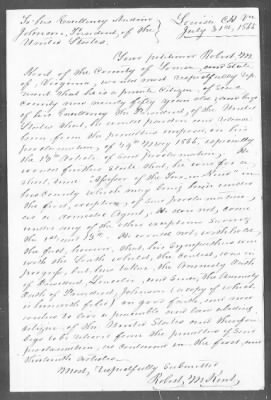 To his Excellency Andrew
Johnson, President, of the
United States.
Louisa CH Va
July 31st, 1865
Your petitioner Robert M
Kent of the County of Louisa, and State
of Virginia, would most respectfully rep
resent that he is a private citizen, of said
county and nearly fifty years old, and begs
of his Excellency the President, of the United
States that he would pardon and release
him, from the penalties imposed, in his
proclamation, of 29th May 1865, especially
the 13th Article of said proclamation, He
would further state that, he was for a
short, time Assessor of the Tax, in Kind in
his County which may bring him under
the first, exception, of said proclamation,
as a domestic Agent; He was not, come
under any of the other exceptions, saving
the 1st and 13th. He would not, withhold,
the fact, known, that, his sympathies was
with the South whilst, the contest, was in
progress, but has taken the Amnesty Oath
of President, Lincoln, and since, the Amnesty
Oath of President, Johnson (a copy of which
is herewith filed) in good faith, and now
wishes to live a peaceable and law abiding
citizen, of the United States and therefore
begs to be released from the penalties of said
proclamation, as contained in the first, and
thirteenth articles.
Most, respectfully submitted
Robert, M Kent,